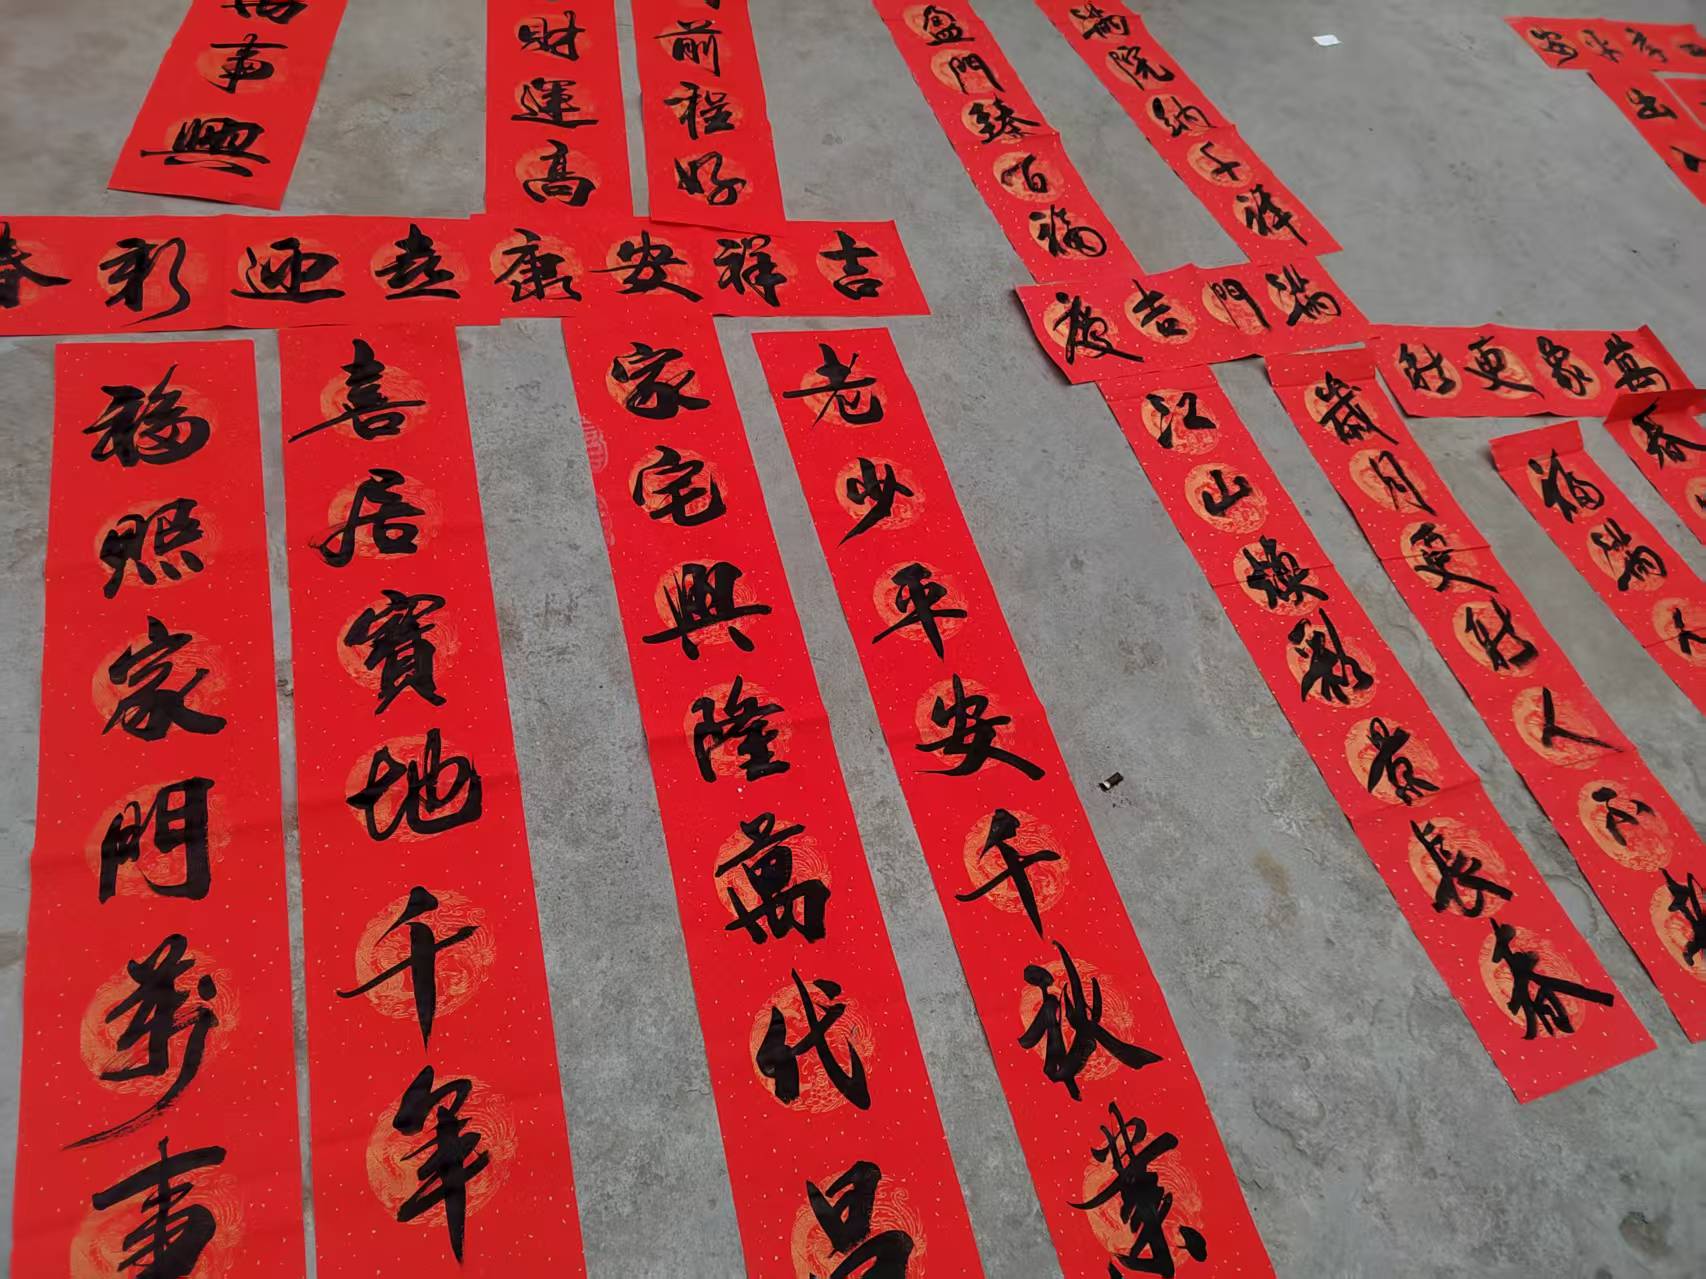 萬事興
財運高
前程好
盈門臻百福
滿院納千祥
出
吉祥安康
喜迎新春
滿門吉慶
萬家更新
福照家門萬事
喜居寶地千年
家宅興隆萬代昌
老少平安千秋業
江山煥彩景長春
歲月更新人不老
福滿人
春